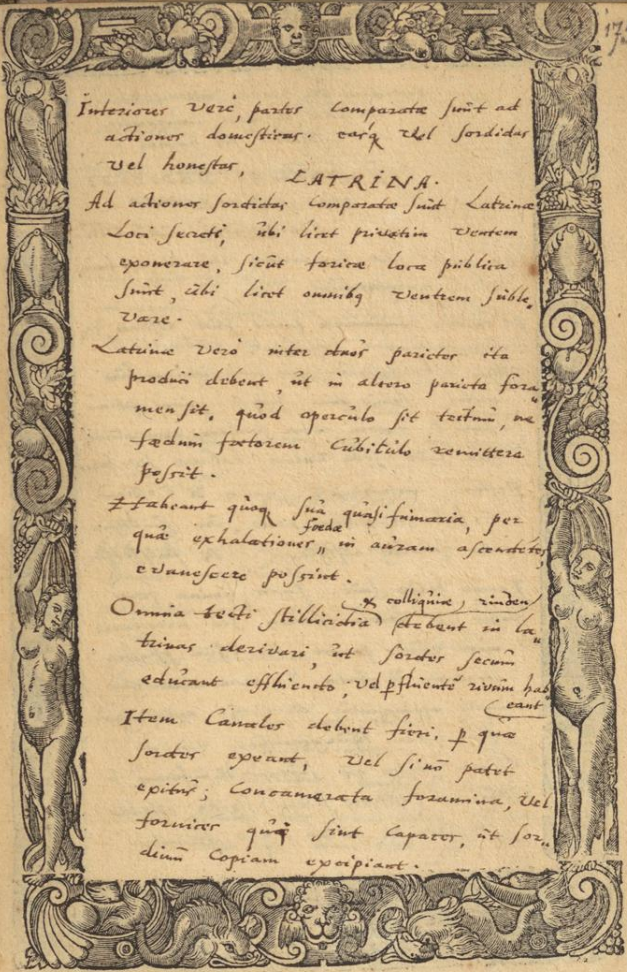 Interiores verò, partes comparatæ sunt ad
actiones domesticas. easq̃ vel sordidas
vel honestas,
LATRINA.
Ad actiones sordidas comparatæ sunt Latrinæ
Loci secreti, ubi licet privatim ventrem
exonerare, sicut foricæ loca publica
sunt, ubi licet omnibq ventrem suble„
vare.
Latrinæ verò inter duos parietes ita
produci debent, ut in altero pariete fora„
men sit, quod operculo sit tectum, ne
fædum fœtorem cubiculo remittere
possit.
Habeant quoq̃ sua quasi fumaria, per
fœdæ
quæ exhalationes „ in auram ascendetes,
evanescere possint.
& colliquiæ, eiusdem
Omnia tecti stillicidia debent in la„
trinas derivari, ut sordes secum
educant effluendo; vel p̱ fluentẽ rivum hab„
eant
Item Canales debent fieri, p̱ quæ
sordes exeant, vel si nõ patet
exitus; Concamerata foramina, vel
fornices qui sint capaces, ut sor„
dium copiam excipiant.